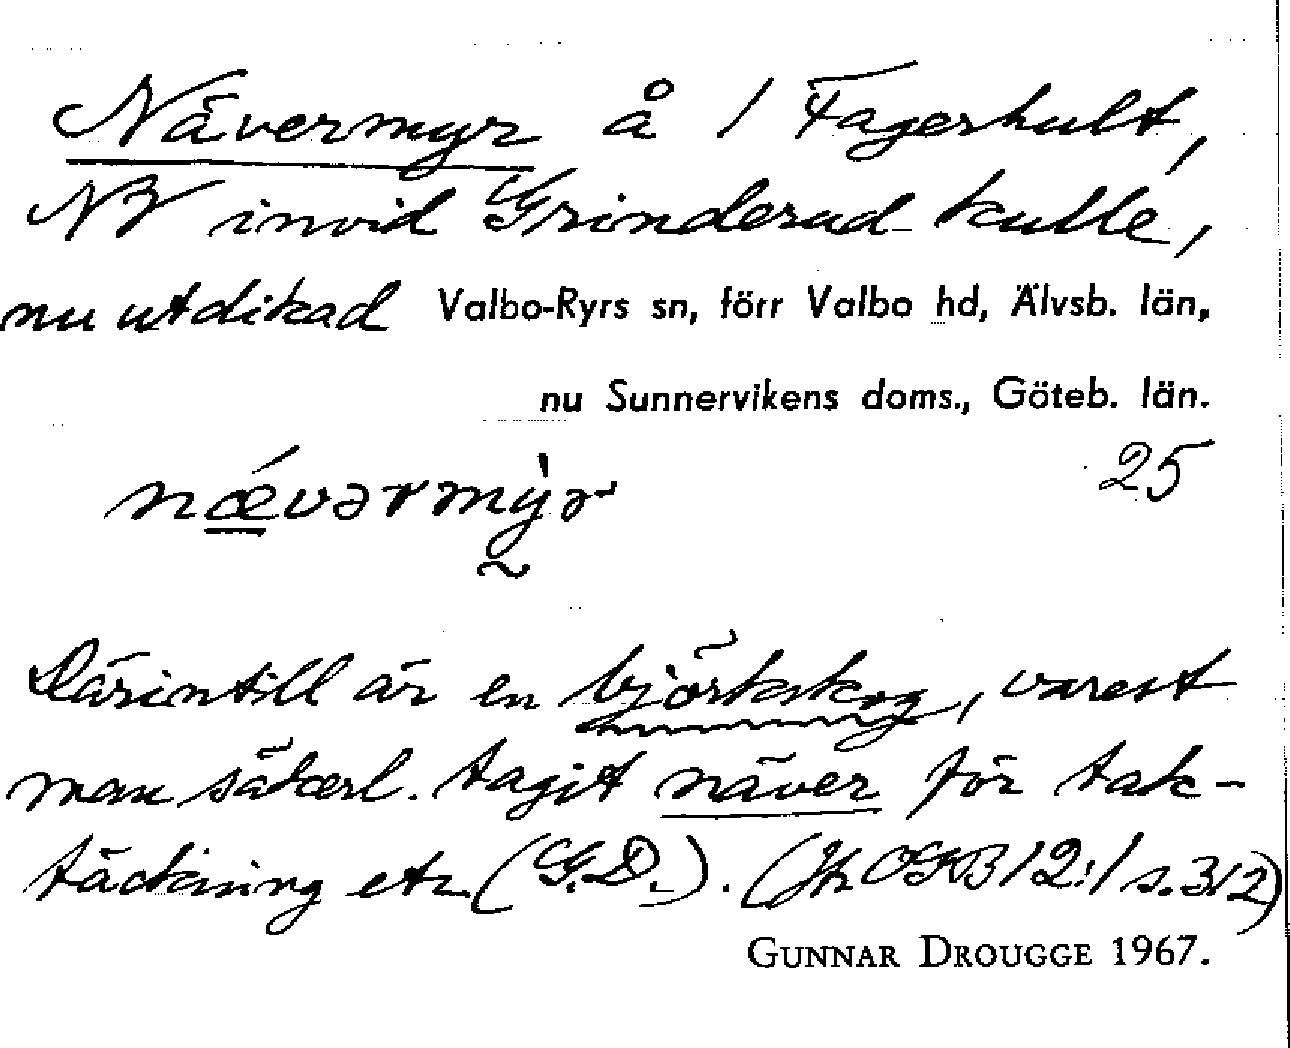 Nävermyr å 1 Fagerhult,
NV invid Grinderud kulle,
nu utdikad Valbo-Ryrs sn, förr Valbo hd, Älvsb. län,
nu Sunnervikens doms., Göteb. län.
25
nǽvərmỳr
Därintill är en björkskog, varest
man säkerl. tagit näver för tak-
täckning etc. (G.D.). (Jfr OGB 12:1 s. 312)
GUNNAR DROUGGE 1967.